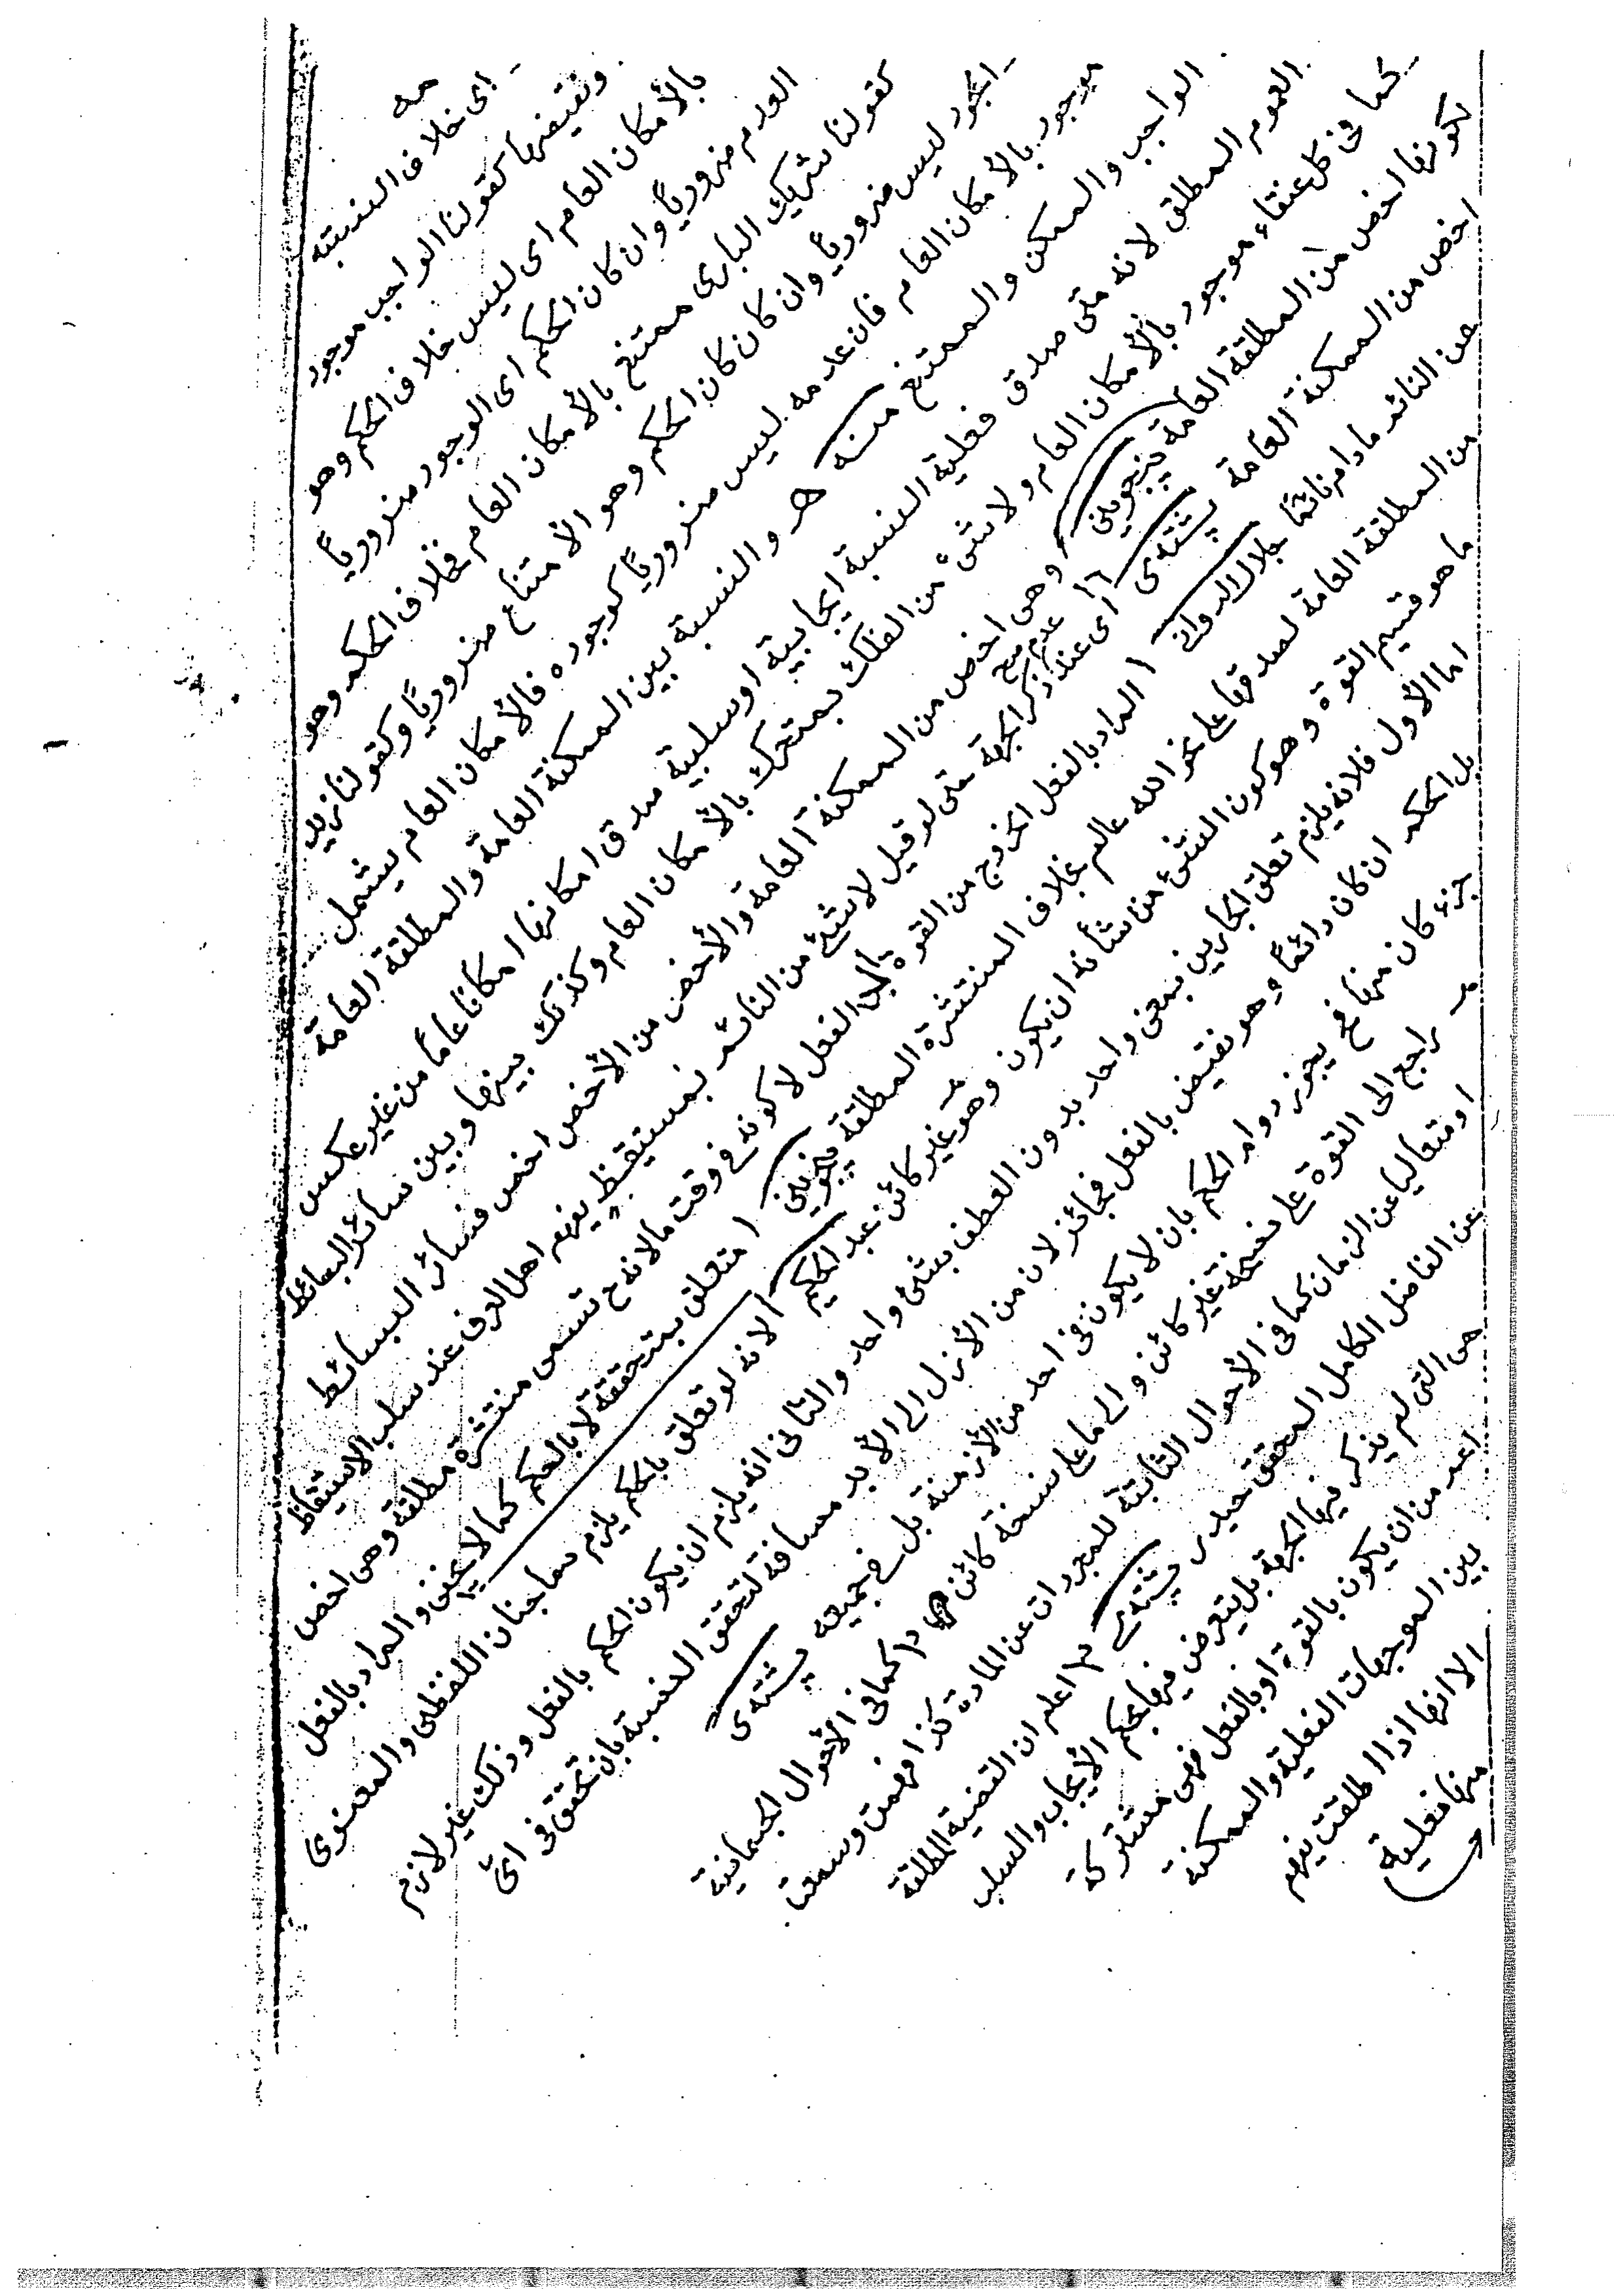 اى خلاف النسبة
ونقيضها كقولنا الواجب موجود
بالأمكان العام اى ليس خلاف الحكم وهو
العدم ضروريًا وان كان الحكم اى الوجود ضروريًا
كقولنا شريك البارى ممتنع بالأمكان العام فخلاف الحكم وهو
الوجود ليس ضروريًا وان كان كان الحكم وهو الأمتناع ضروريًا وكقولنا زيد
موجود بالأمكان العام فان عدمه ليس ضروريًا كوجوده فالأمكان العام يشمل
الواجب والممكن والممتنع منه هـ والنسبة بين الممكنة العامة والمطلقة العامة
العموم المطلق لانه متى صدق فعلية النسبة ايجابية اوسلبية صدق امكانها امكانًا عامًا من غير عكس
كما فى كل عنقاء موجود بالأمكان العام ولاشئ من الفلك بمتحرك بالأمكان العام وكذلك بينها وبين سائر البسائط
لكونها اخص من المطلقة العامة پنجوينى وهى اخص من الممكنة العامة والأخص من الأخص اخص فسائر البسائط
اخص من الممكنة العامة پشتدى ١ اى عند ذكر الجهة حتى لو قيل لاشئ من النائم بمستيقظ يفهم اهل العرف عند سلب الاستيقاظ
عن النائم مادام نائمًا جلال الدوانى ١ المراد بالفعل الخروج من القوة الى الفعل لا كونه فى وقت ما لانه ح تسمى منتشرة مطلقة وهى اخص
من المطلقة العامة لصدقها على نحو الله عالم بخلاف المنتشرة المطلقة پنجوينى ١ متعلق بتحققة لا بالحكم كما لا يخفى والمراد بالفعل
ما هو قسيم القوة وهو كون الشئ من شأنه ان يكون وهو غير كائن عبد الحكيم ١ لانه لو تعلق بالحكم يلزم سماجتان اللفظى والمعنوى
اما الأول فلانه يلزم تعلق الجارين بمعنى واحد بدون العطف بشئ واحد والثانى انه يلزم ان يكون الحكم بالفعل وذلك غير لازم
بل الحكم ان كان دائمًا وهو نقيض بالفعل فجائز لان من الأزل الى الأبد مسافة لتحقق النسبة بان تحقق فى اىّ
جزء كان منها فح يجوز دوام الحكم بان لا يكون فى احد من الأزمنة بل فى جميعه پشتدى
راجع الى القوة على نسخة غير كائن والى ما على نسخة كائن ٢ كما فى الأحوال الجسمانية
او متعاليا عن الزمان كما فى الأحوال الثابتة للمجردات عن المادة كذا فهمت وسمعت
عن الفاضل الكامل المحقق حيدر پشتدى ٣ اعلم ان القضية المطلقة
هى التى لم يذكر فيها الجهة بل يتعرض فيها بحكم الأيجاب والسلب
اعم من ان يكون بالقوة او بالفعل فهى مشتركة
بين الموجهات الفعلية والممكنة
الا انها اذا اطلقت يفهم
منها فعلية